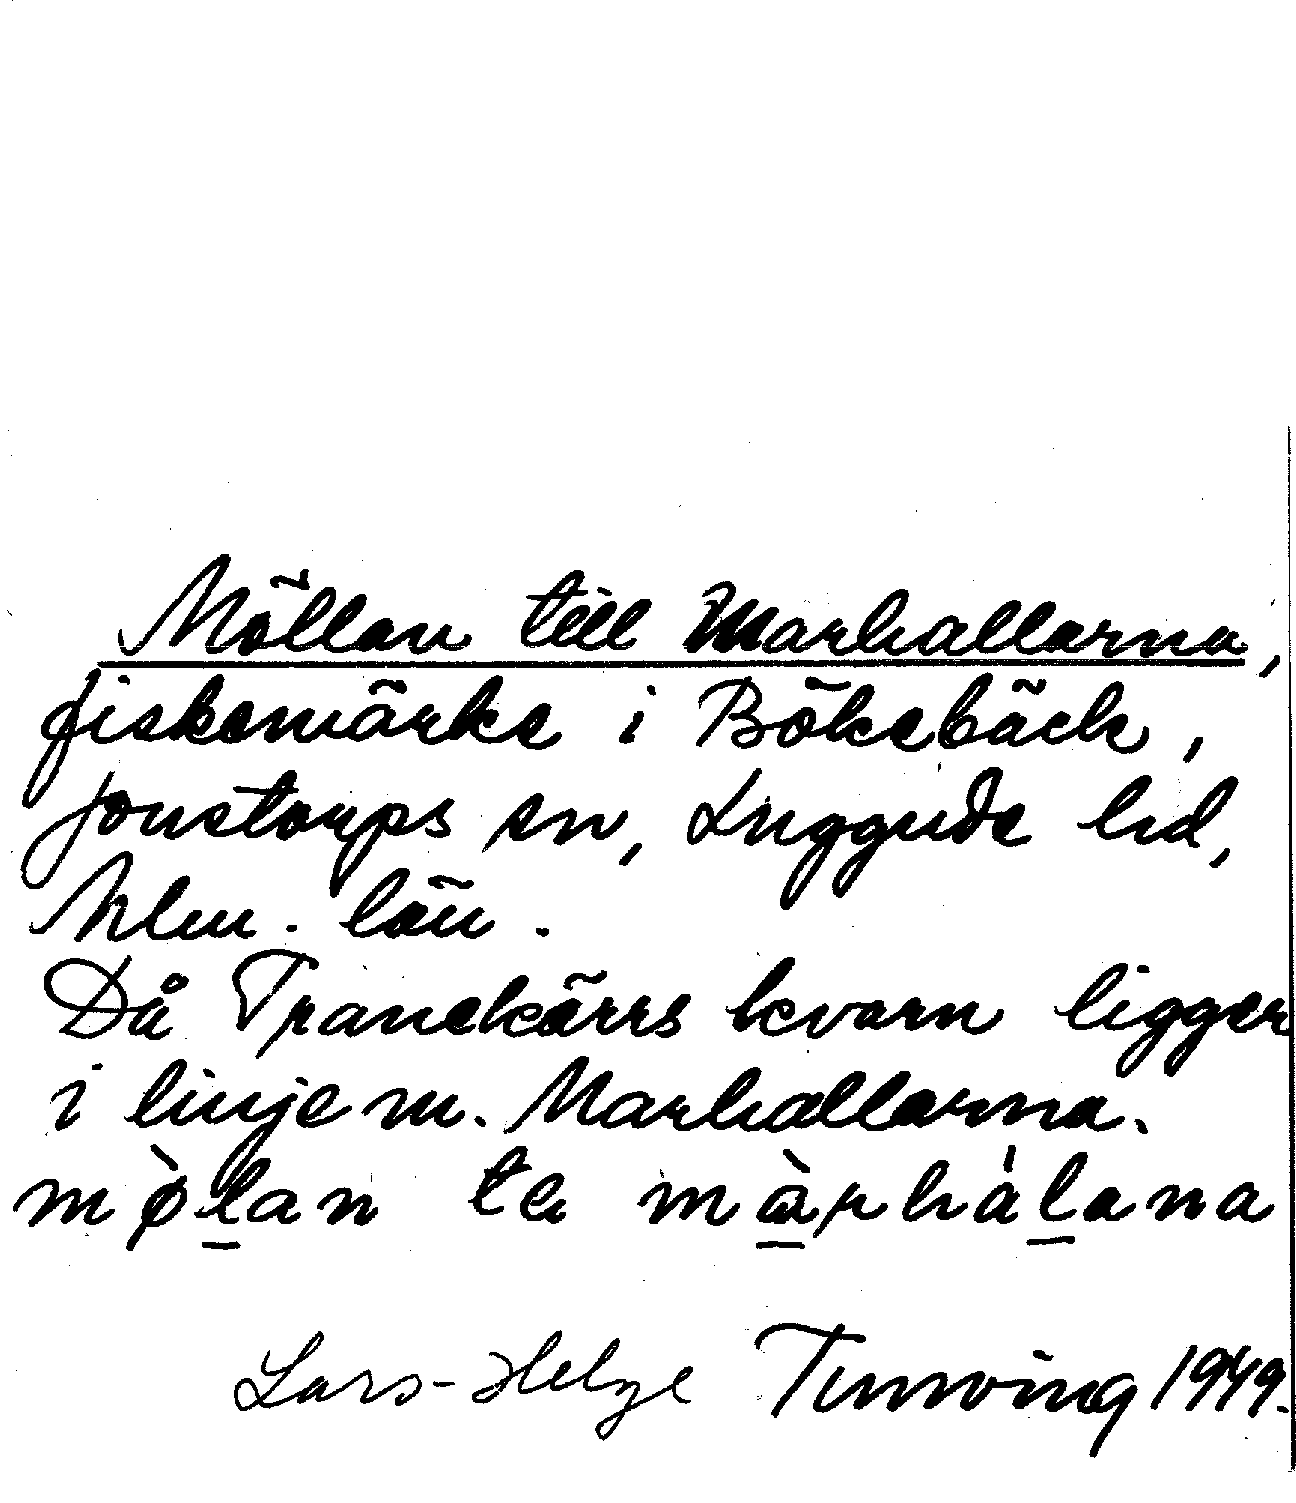 Möllan till Marhallarna,
fiskemärke i Bökebäck,
Jonstorps sn, Luggude hd,
Mlm. län.
Då Tranekärrs kvarn ligger
i linje m. Marhallarna.
mø̀lan te màrhálana
Lars-Helge Tunving 1949.